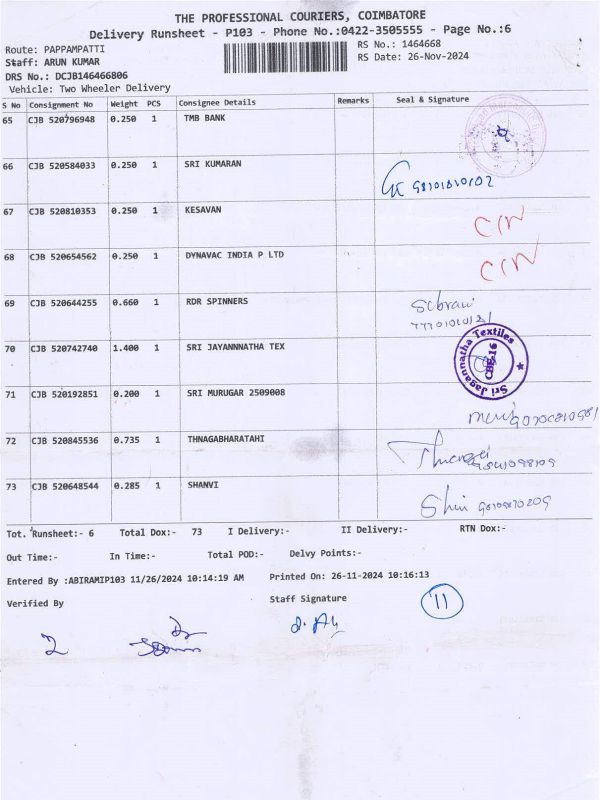 THE PROFESSIONAL COURIERS, COIMBATORE
Delivery Runsheet - P103 - Phone No.:0422-3505555 - Page No.:6
Route: PAPPAMPATTI
RS No.: 1464668
Staff: ARUN KUMAR
RS Date: 26-Nov-2024
DRS No.: DCJB146466806
Vehicle: Two Wheeler Delivery
S No Consignment No Weight PCS Consignee Details Remarks Seal & Signature
65 CJB 520796948 0.250 1 TMB BANK
66 CJB 520584033 0.250 1 SRI KUMARAN
67 CJB 520810353 0.250 1 KESAVAN CIN
68 CJB 520654562 0.250 1 DYNAVAC INDIA P LTD CIN
69 CJB 520644255 0.660 1 RDR SPINNERS
70 CJB 520742740 1.400 1 SRI JAYANNNATHA TEX Sri Jagannatha Textiles CBE-16
71 CJB 520192851 0.200 1 SRI MURUGAR 2509008
72 CJB 520845536 0.735 1 THNAGABHARATAHI
73 CJB 520648544 0.285 1 SHANVI
Tot. Runsheet:- 6 Total Dox:- 73 I Delivery:- II Delivery:- RTN Dox:-
Out Time:- In Time:- Total POD:- Delvy Points:-
Entered By :ABIRAMIP103 11/26/2024 10:14:19 AM Printed On: 26-11-2024 10:16:13
Verified By Staff Signature
11